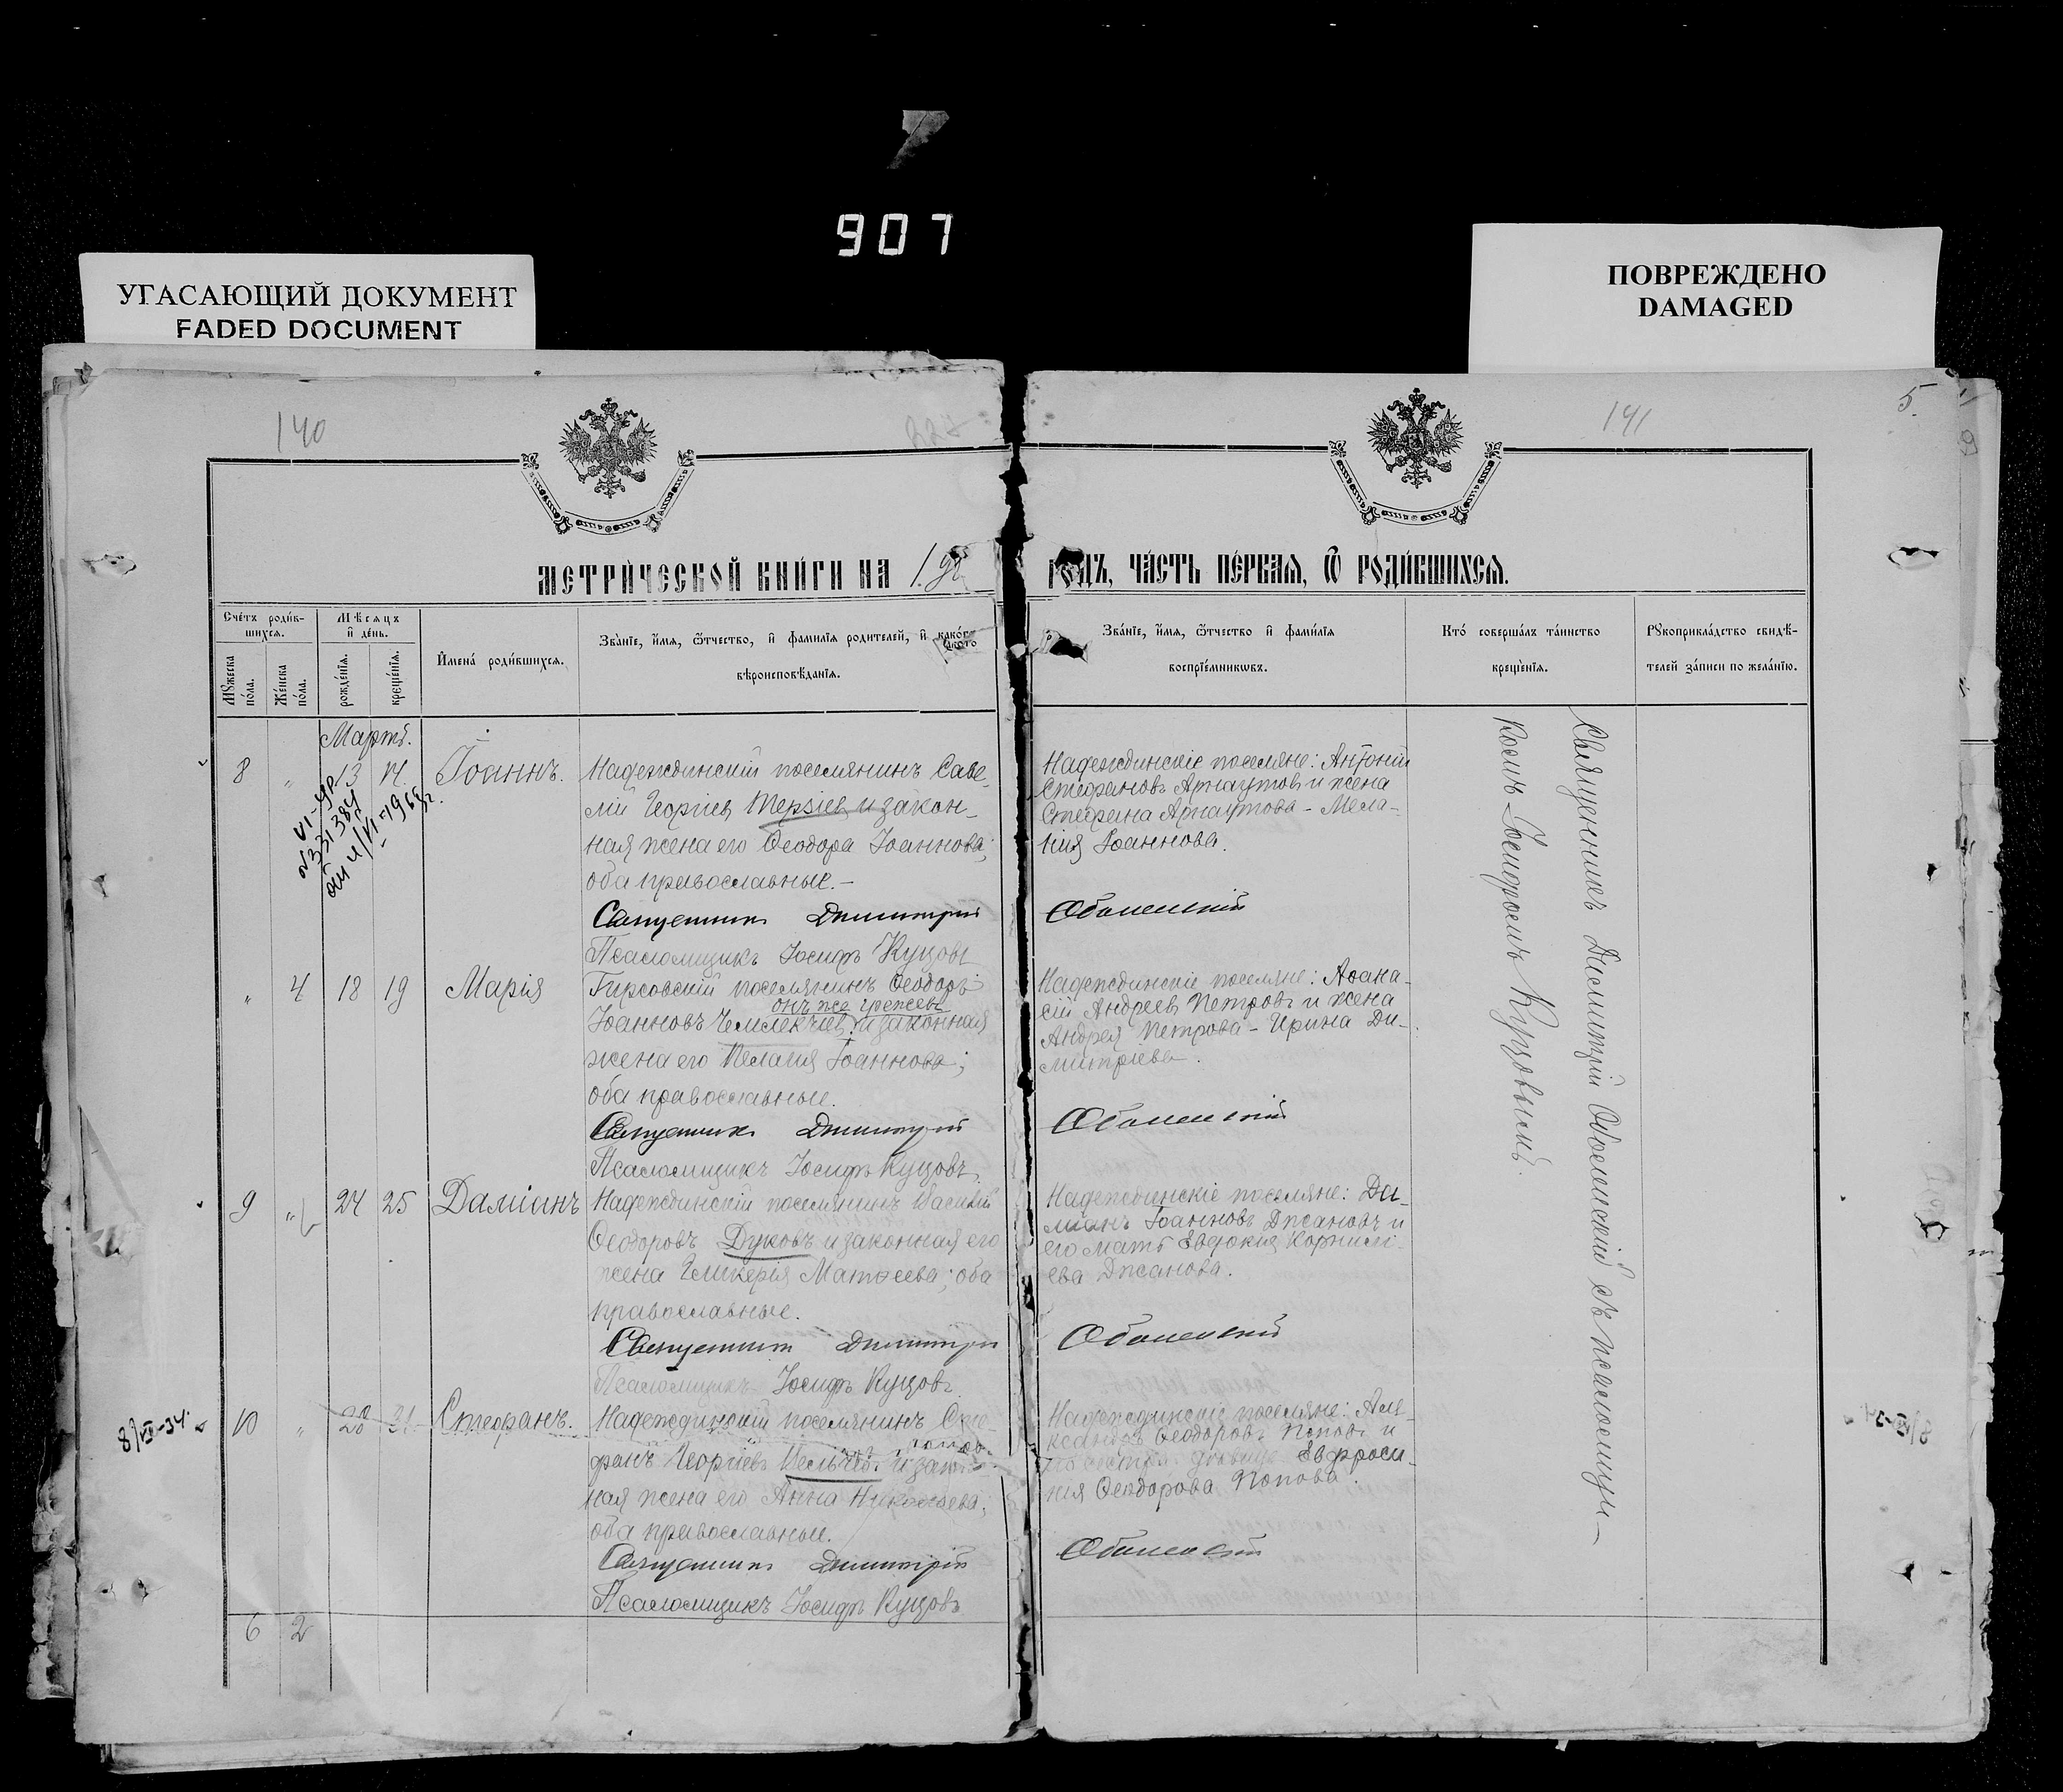 907
УГАСАЮЩИЙ ДОКУМЕНТ
FADED DOCUMENT
ПОВРЕЖДЕНО
DAMAGED
140
141
5.
МЕТРИ́ЧЕСКОЙ КНИ́ГИ НА 19
ГОДЪ, ЧА́СТЬ ПЕ́РВАЯ, Ѿ РОДИ́ВШИХСЯ.
Сче́тъ роди́в-
шихся.
Мѣ́сяцъ
и де́нь.
Му́жеска
по́ла.
Же́нска
по́ла.
рожде́нія.
креще́нія.
Имена́ роди́вшихся.
Зва́ніе, и́мя, ѻ́тчество, и фамилія родителей, и како́г
вѣроисповѣ́данія.
Зва́ніе, и́мя, ѻ́тчество и фами́лія
воспріе́мниковъ.
Кто̀ соверша́лъ та́инство
креще́нія.
Рукоприкла́дство свидѣ́-
телей за́писи по жела́нію.
Мартъ.
8 " 13 14. Іоаннъ.
VI-ЯР
№331384
от 4/VI-1965г.
Надеждинскій поселянинъ Саве-
лій Георгіев Терзіев и закон-
ная жена его Ѳеодора Іоаннова;
оба православные.-
Священникъ Димитрій
Псаломщикъ Іосифъ Куцовъ
Надеждинскіе поселяне: Антоній
Стефановъ Арнаутов и жена
Стефана Арнаутова - Мела-
нія Іоаннова.
Оболенскій
" 4 18 19 Марія
Гирсовскій поселянинъ Ѳеодоръ
онъ же
Іоанновъ Чемлекчіев и законная
жена его Пелагія Іоаннова;
оба православные.
Священникъ Димитрій
Псаломщикъ Іосифъ Куцовъ.
Надеждинскіе поселяне: Аѳана-
сій Андреев Петровъ и жена
Андрея Петрова - Ирина Ди-
митріева.
Оболенскій
9 " 24 25 Даміанъ
Надеждинскій поселянинъ Василій
Ѳеодоровъ Дуковъ и законная его
жена Гликерія Матѳеева; оба
православные.
Священникъ Димитрій
Псаломщикъ Іосифъ Куцовъ.
Надеждинскіе поселяне: Да-
міанъ Іоанновъ Джановъ и
его мать Евдокія Корнилі-
ева Джанова.
Оболенскій
8/VII-34
10 " 28 31 Стефанъ.
Надеждинскій поселянинъ Сте-
фанъ Георгіевъ и закон-
ная жена его Анна Николаева;
оба православные.
Священникъ Димитрій
Псаломщикъ Іосифъ Куцовъ
Надеждинскіе поселяне: Але-
ксандръ Ѳеодоровъ Поповъ и
Евфроси-
нія Ѳеодорова Попова.
Оболенскій
Священникъ Димитрій Оболенскій съ псаломщи-
комъ Іосифомъ Куцовымъ.
6 2